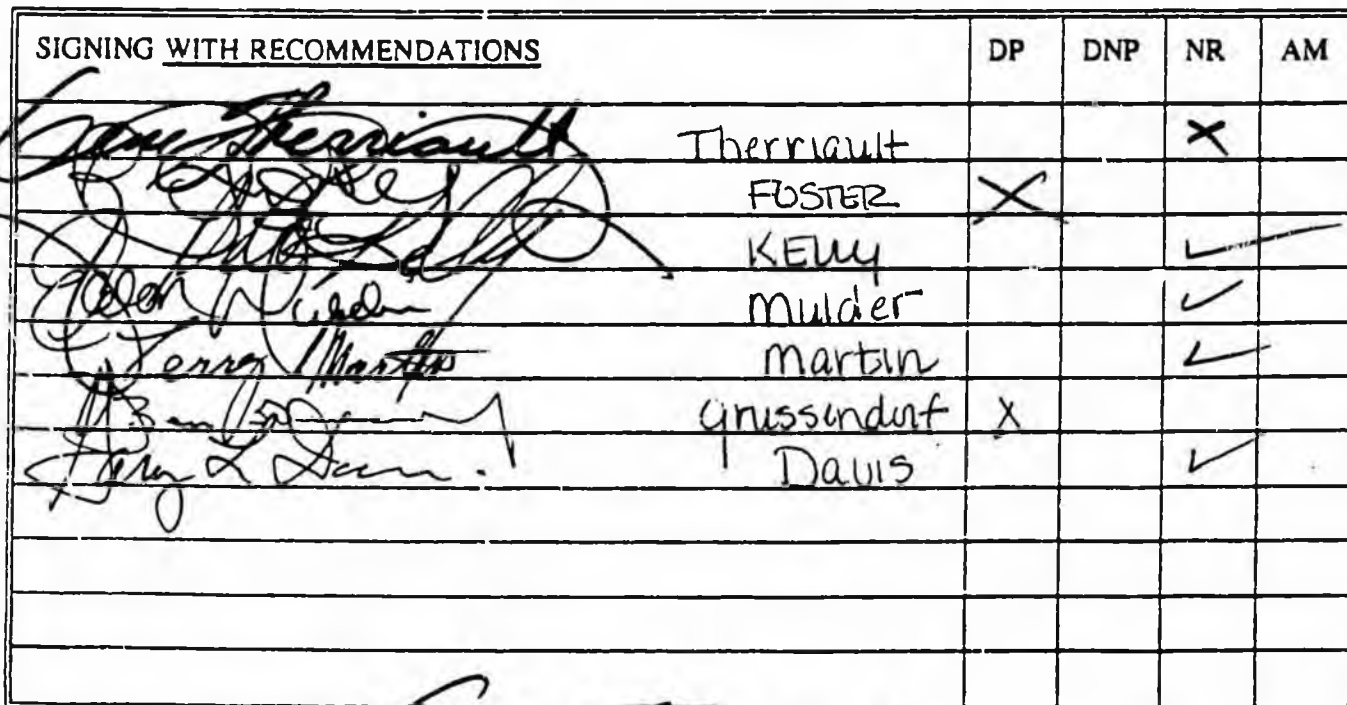 SIGNING WITH RECOMMENDATIONS DP DNP NR AM
Gene Therriault Therriault X
FOSTER X
KELLY ✓
Mulder ✓
Terry Martin Martin ✓
Grussendorf X
Davis ✓